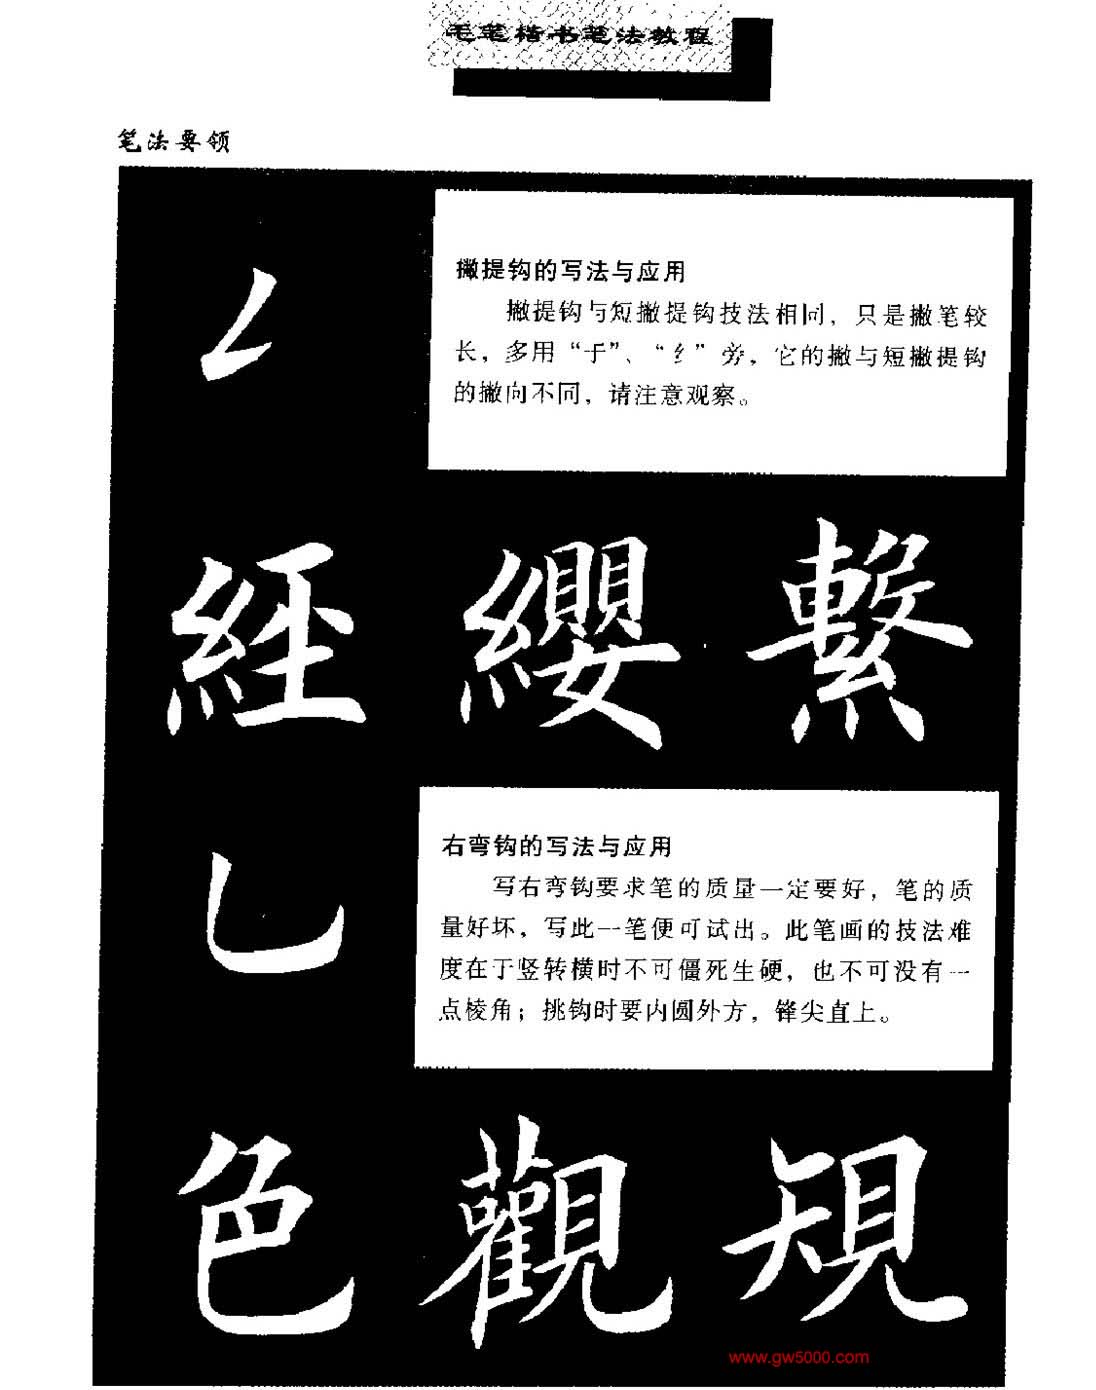 毛笔楷书笔法教程
笔法要领
撇提钩的写法与应用
撇提钩与短撇提钩技法相同，只是撇笔较
长，多用“于”、“纟”旁，它的撇与短撇提钩
的撇向不同，请注意观察。
經 纓 繫
右弯钩的写法与应用
写右弯钩要求笔的质量一定要好，笔的质
量好坏，写此一笔便可试出。此笔画的技法难
度在于竖转横时不可僵死生硬，也不可没有一
点棱角；挑钩时要内圆外方，锋尖直上。
色 觀 規
www.gw5000.com